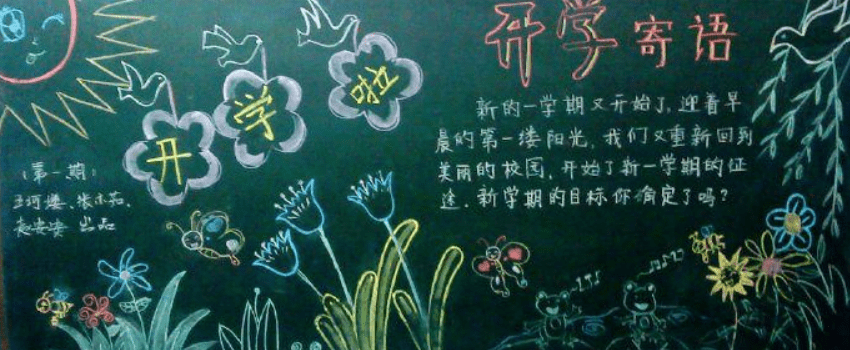 开学啦
开学寄语
新的一学期又开始了,迎着早
晨的第一缕阳光,我们又重新回到
美丽的校园,开始了新一学期的征
途。新学期的目标你肯定了吗?
(第一期)
出品